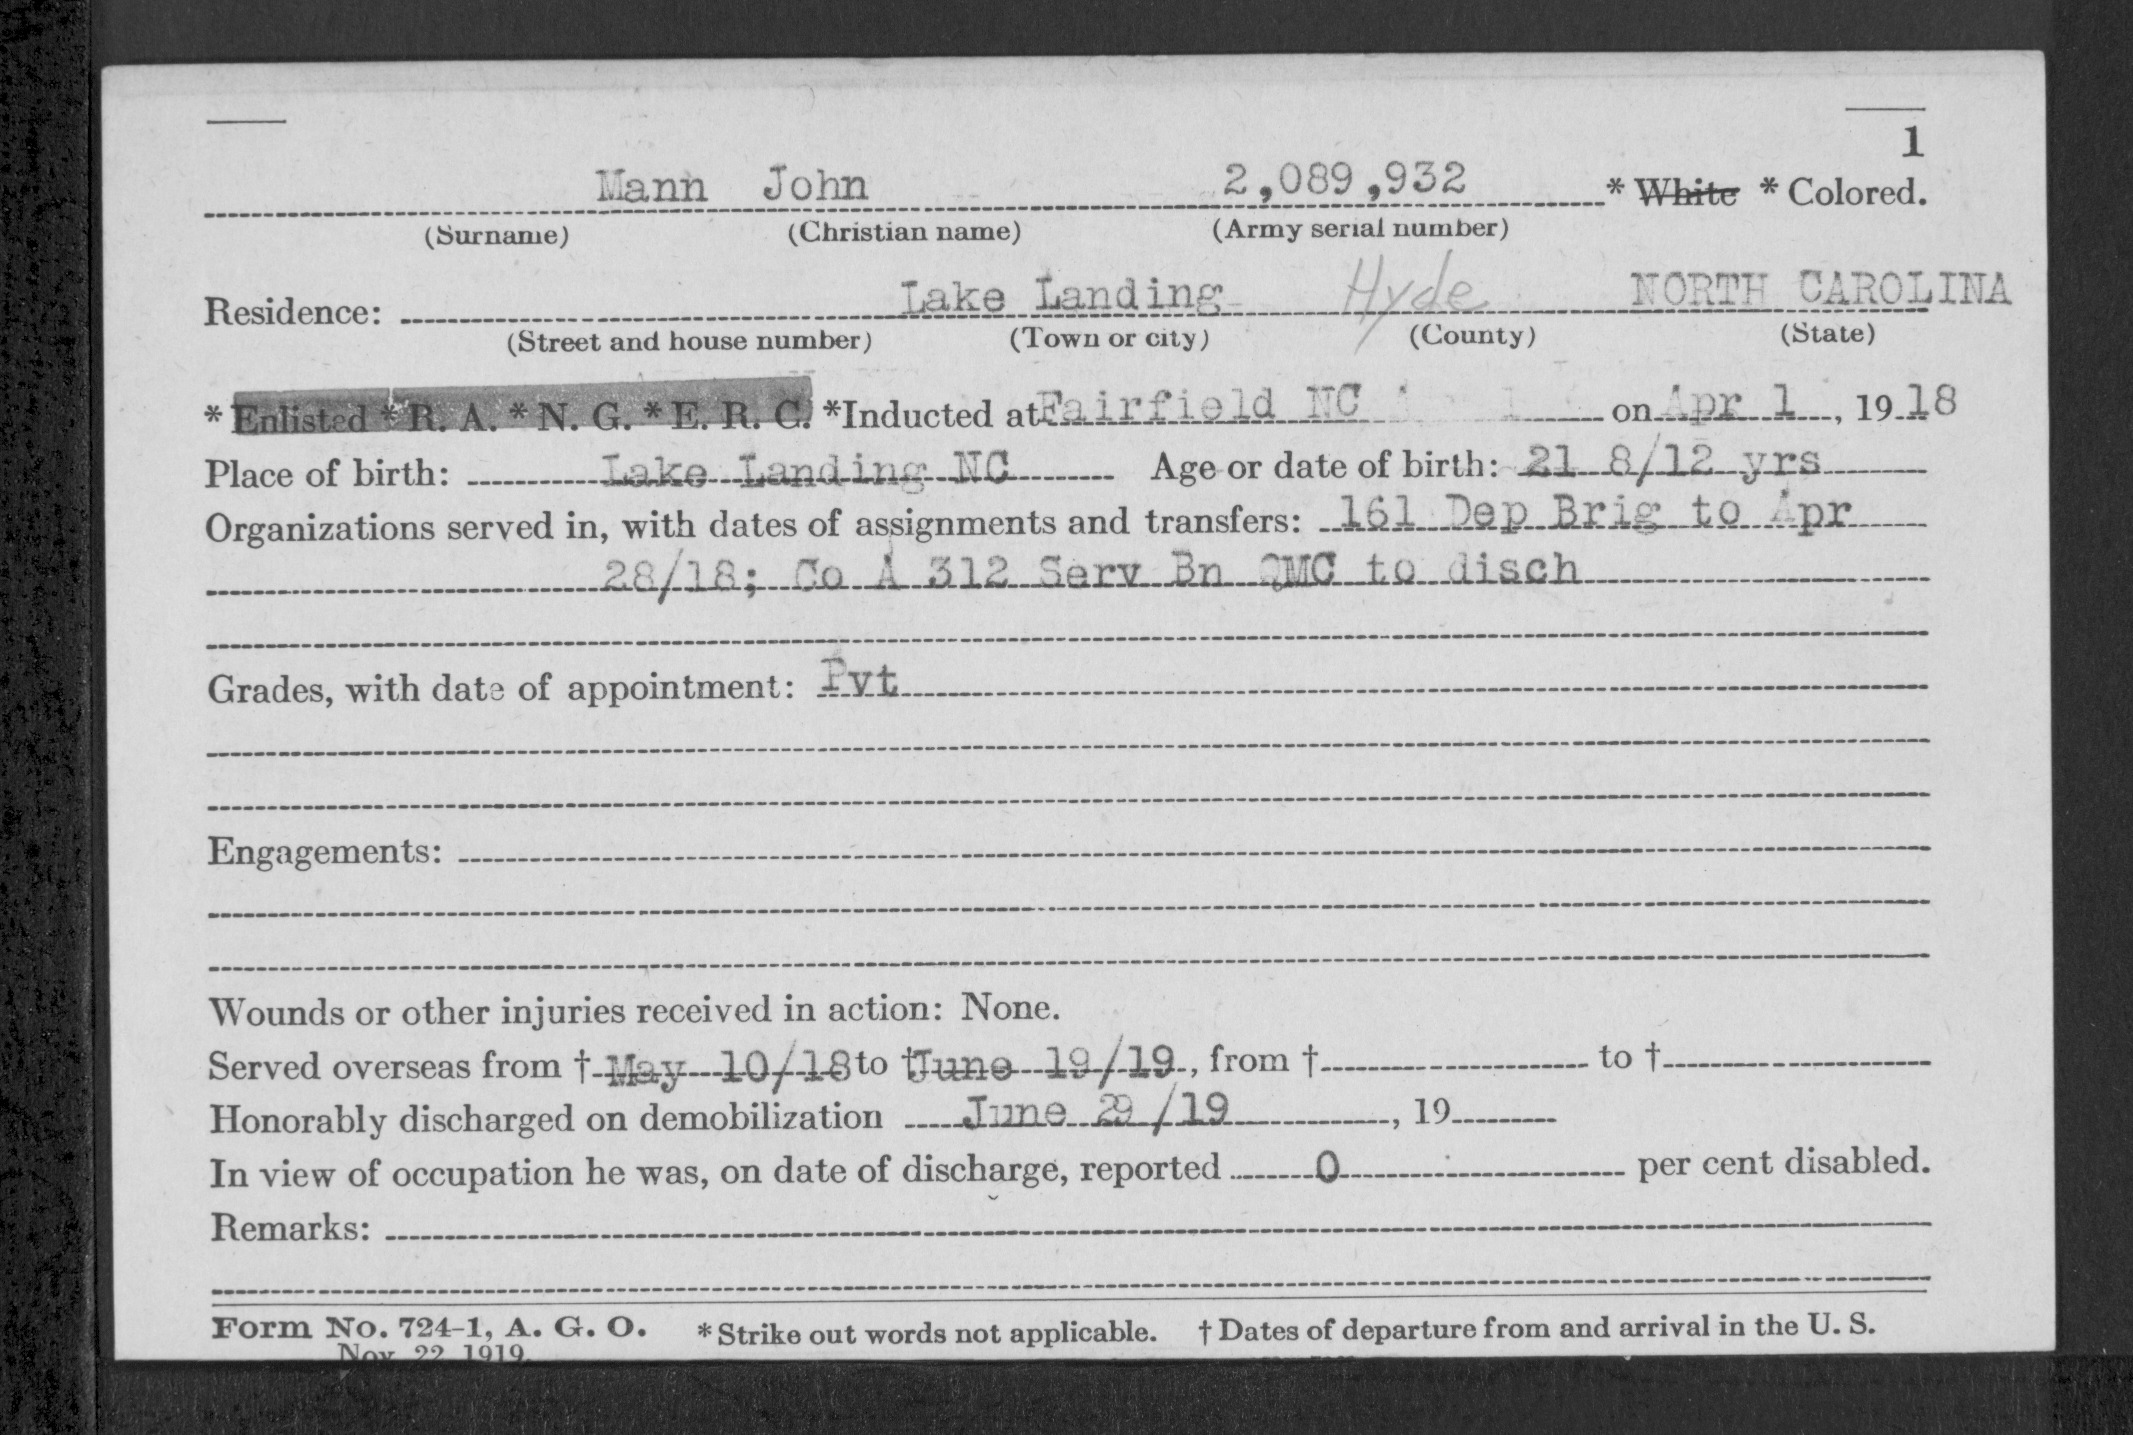 1
Mann John 2,089,932 * White * Colored.
(Surname) (Christian name) (Army serial number)
Residence: Lake Landing Hyde NORTH CAROLINA
(Street and house number) (Town or city) (County) (State)
* Enlisted * R. A. * N. G. * E. R. C. *Inducted at Fairfield NC on Apr 1, 19 18
Place of birth: Lake Landing NC Age or date of birth: 21 8/12 yrs
Organizations served in, with dates of assignments and transfers: 161 Dep Brig to Apr
28/18; Co A 312 Serv Bn QMC to disch
Grades, with date of appointment: Pvt
Engagements:
Wounds or other injuries received in action: None.
Served overseas from † May 10/18 to † June 19/19, from † to †
Honorably discharged on demobilization June 29/19, 19
In view of occupation he was, on date of discharge, reported 0 per cent disabled.
Remarks:
Form No. 724-1, A. G. O. * Strike out words not applicable. † Dates of departure from and arrival in the U. S.
Nov. 22, 1919.